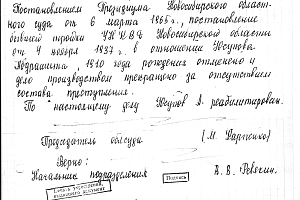 Постановлением Президиума Новосибирского област-
ного суда от 6 марта 1965 г., постановление
бывшей тройки УНКВД Новосибирской области
от 4 ноября 1937 г. в отношении Юсупова
1910 года рождения отменено и
дело производством прекращено за отсутствием
состава преступления.
По настоящему делу Юсупов А. реабилитирован.
Председатель облсуда (М. Карпенко)
Верно:
Начальник подразделения А. В. Ревокин.
Подпись